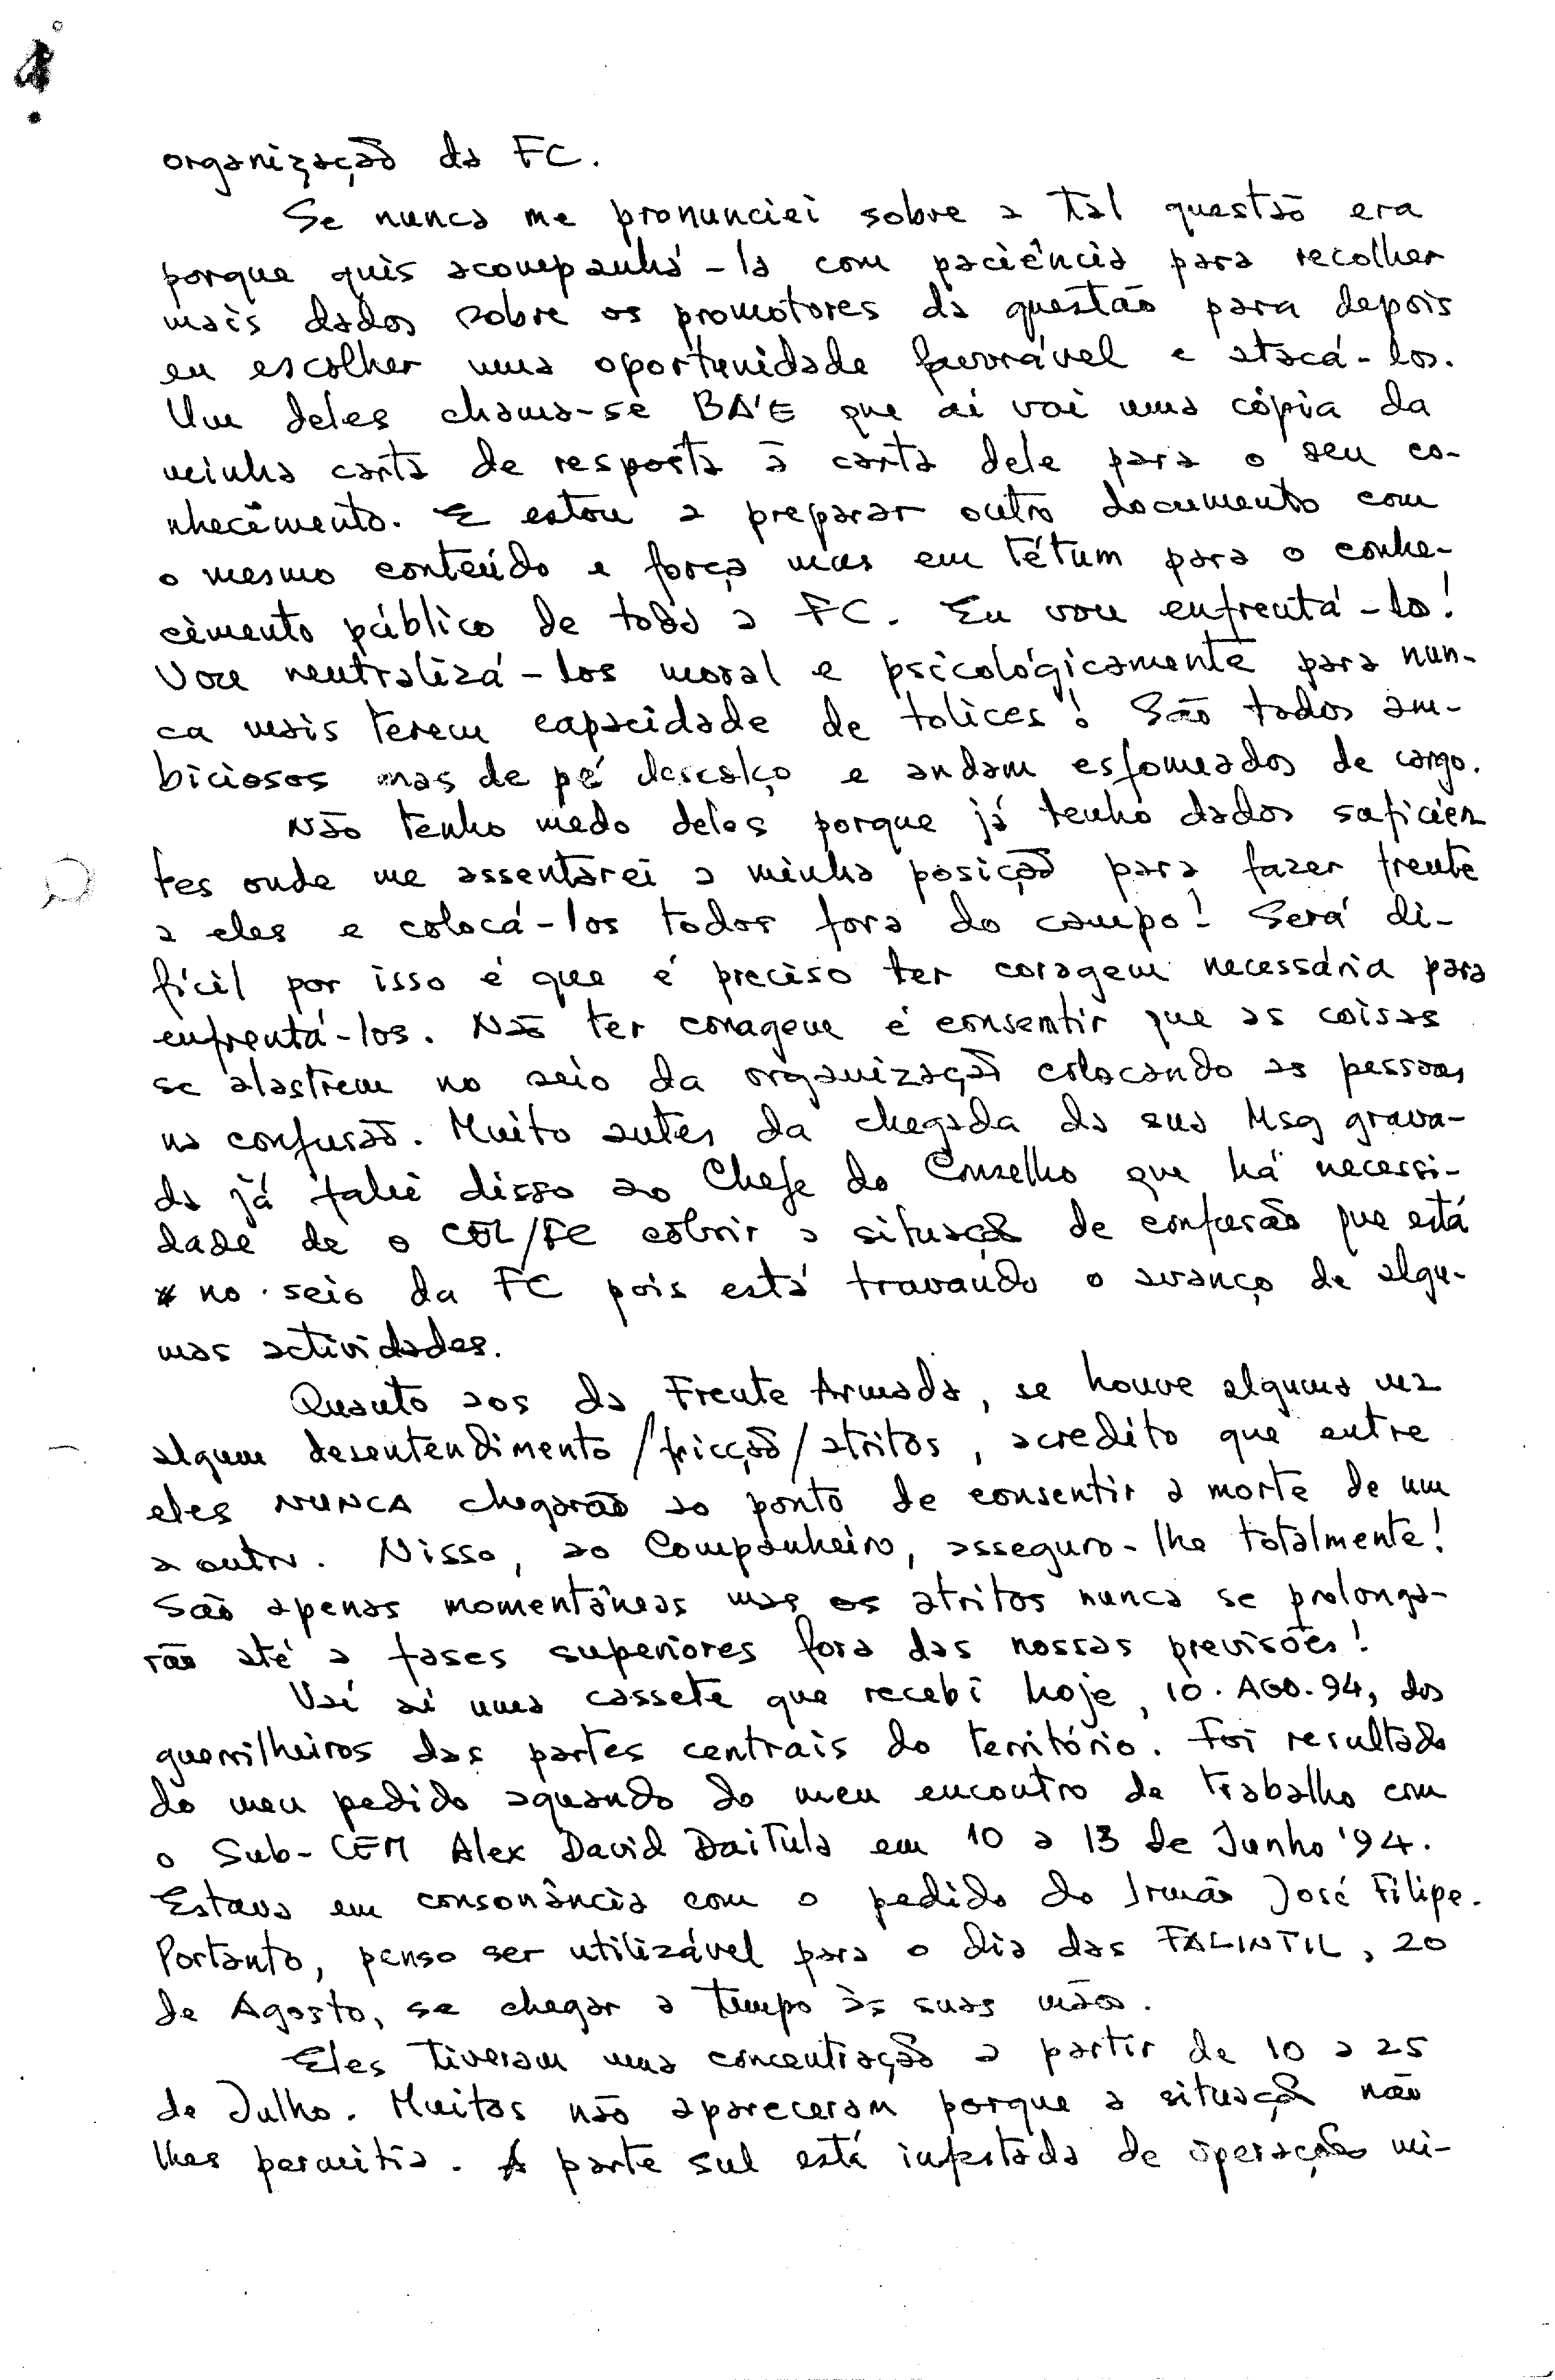 organização da FC.
Se nunca me pronunciei sobre a tal questão era
porque quis acompanhá-la com paciência para recolher
mais dados sobre os promotores da questão para depois
eu escolher uma oportunidade favorável e atacá-los.
Um deles chama-se BA'E que aí vai uma cópia da
minha carta de resposta à carta dele para o seu co-
nhecimento. E estou a preparar outro documento com
o mesmo conteúdo e força mas em tétum para o conhe-
cimento público de toda a FC. Eu vou enfrentá-lo!
Vou neutralizá-los moral e psicológicamente para nun-
ca mais terem capacidade de tolices! São todos am-
biciosos mas de pé descalço e andam esfomeados de cargo.
Não tenho medo deles porque já tenho dados suficien
tes onde me assentarei a minha posição para fazer frente
a eles e colocá-los todos fora do campo! Será di-
fícil por isso é que é preciso ter coragem necessária para
enfrentá-los. Não ter coragem é consentir que as coisas
se alastrem no seio da organização colocando as pessoas
na confusão. Muito antes da chegada da sua Msg grava-
da já falei disso ao Chefe do Conselho que há necessi-
dade de o CEL/FC cobrir a situação de confusão que está
no seio da FC pois está travando o avanço de algu-
mas actividades.
Quanto aos da Frente Armada, se houve alguma vez
algum desentendimento/fricção/atritos, acredito que entre
eles NUNCA chegarão ao ponto de consentir a morte de um
a outro. Nisso, ao Companheiro, asseguro-lhe totalmente!
São apenas momentâneas mas os atritos nunca se prolonga-
rão até a fases superiores fora das nossas previsões!
Vai aí uma cassete que recebi hoje, 10.AGO.94, dos
guerrilheiros das partes centrais do território. Foi resultado
do meu pedido aquando do meu encontro de trabalho com
o Sub-CEM Alex David Daitula em 10 a 13 de Junho '94.
Estava em consonância com o pedido do Irmão José Filipe.
Portanto, penso ser utilizável para o dia das FALINTIL, 20
de Agosto, se chegar a tempo às suas mãos.
Eles tiveram uma concentração a partir de 10 a 25
de Julho. Muitos não apareceram porque a situação não
lhes permitia. A parte sul está infestada de operações mi-